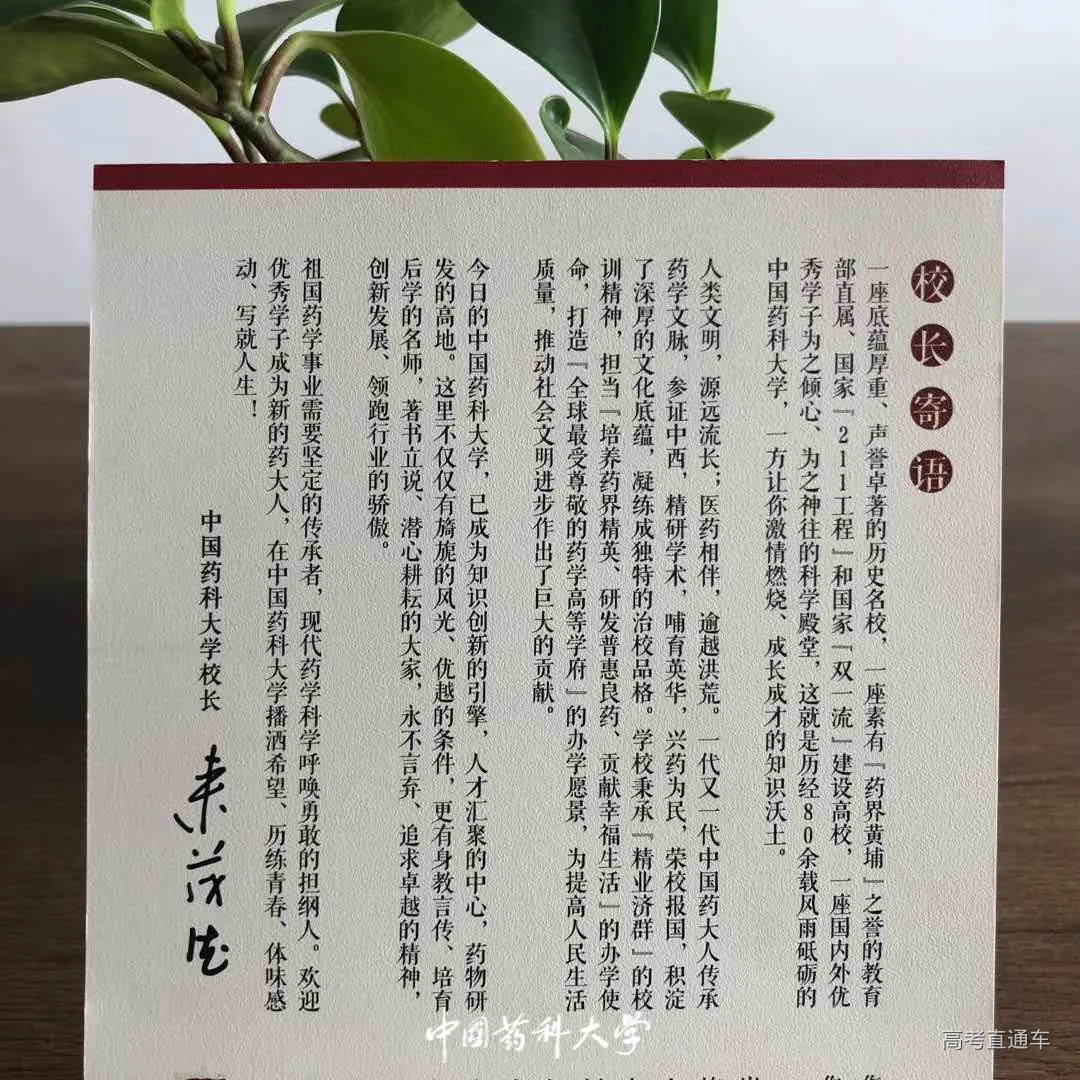 校长寄语
一座底蕴厚重、声誉卓著的历史名校，一座素有『药界黄埔』之誉的教育
部直属、国家『211工程』和国家『双一流』建设高校，一座国内外优
秀学子为之倾心、为之神往的科学殿堂，这就是历经80余载风雨砥砺的
中国药科大学，一方让你激情燃烧、成长成才的知识沃土。
人类文明，源远流长；医药相伴，逾越洪荒。一代又一代中国药大人传承
药学文脉，参证中西，精研学术，哺育英华，兴药为民，荣校报国，积淀
了深厚的文化底蕴，凝练成独特的治校品格。学校秉承『精业济群』的校
训精神，担当『培养药界精英、研发普惠良药、贡献幸福生活』的办学使
命，打造『全球最受尊敬的药学高等学府』的办学愿景，为提高人民生活
质量，推动社会文明进步作出了巨大的贡献。
今日的中国药科大学，已成为知识创新的引擎，人才汇聚的中心，药物研
发的高地。这里不仅仅有旖旎的风光、优越的条件，更有身教言传、培育
后学的名师，著书立说、潜心耕耘的大家，永不言弃、追求卓越的精神，
创新发展、领跑行业的骄傲。
祖国药学事业需要坚定的传承者，现代药学科学呼唤勇敢的担纲人。欢迎
优秀学子成为新的药大人，在中国药科大学播洒希望、历练青春、体味感
动、写就人生！
中国药科大学校长
来茂德
中国药科大学
高考直通车